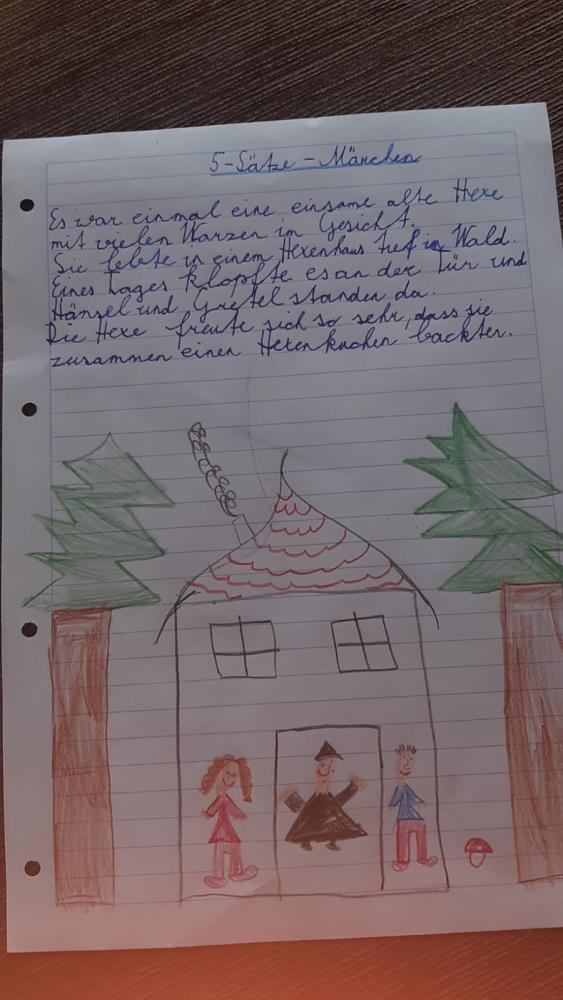 5-Sätze-Märchen
Es war einmal eine einsame alte Hexe
mit vielen Warzen im Gesicht.
Sie lebte in einem Hexenhaus tief in Wald.
Eines Tages klopfte es an der Tür und
Hänsel und Gretel standen da.
Die Hexe freute sich so sehr, dass sie
zusammen einen Hexenkuchen backten.